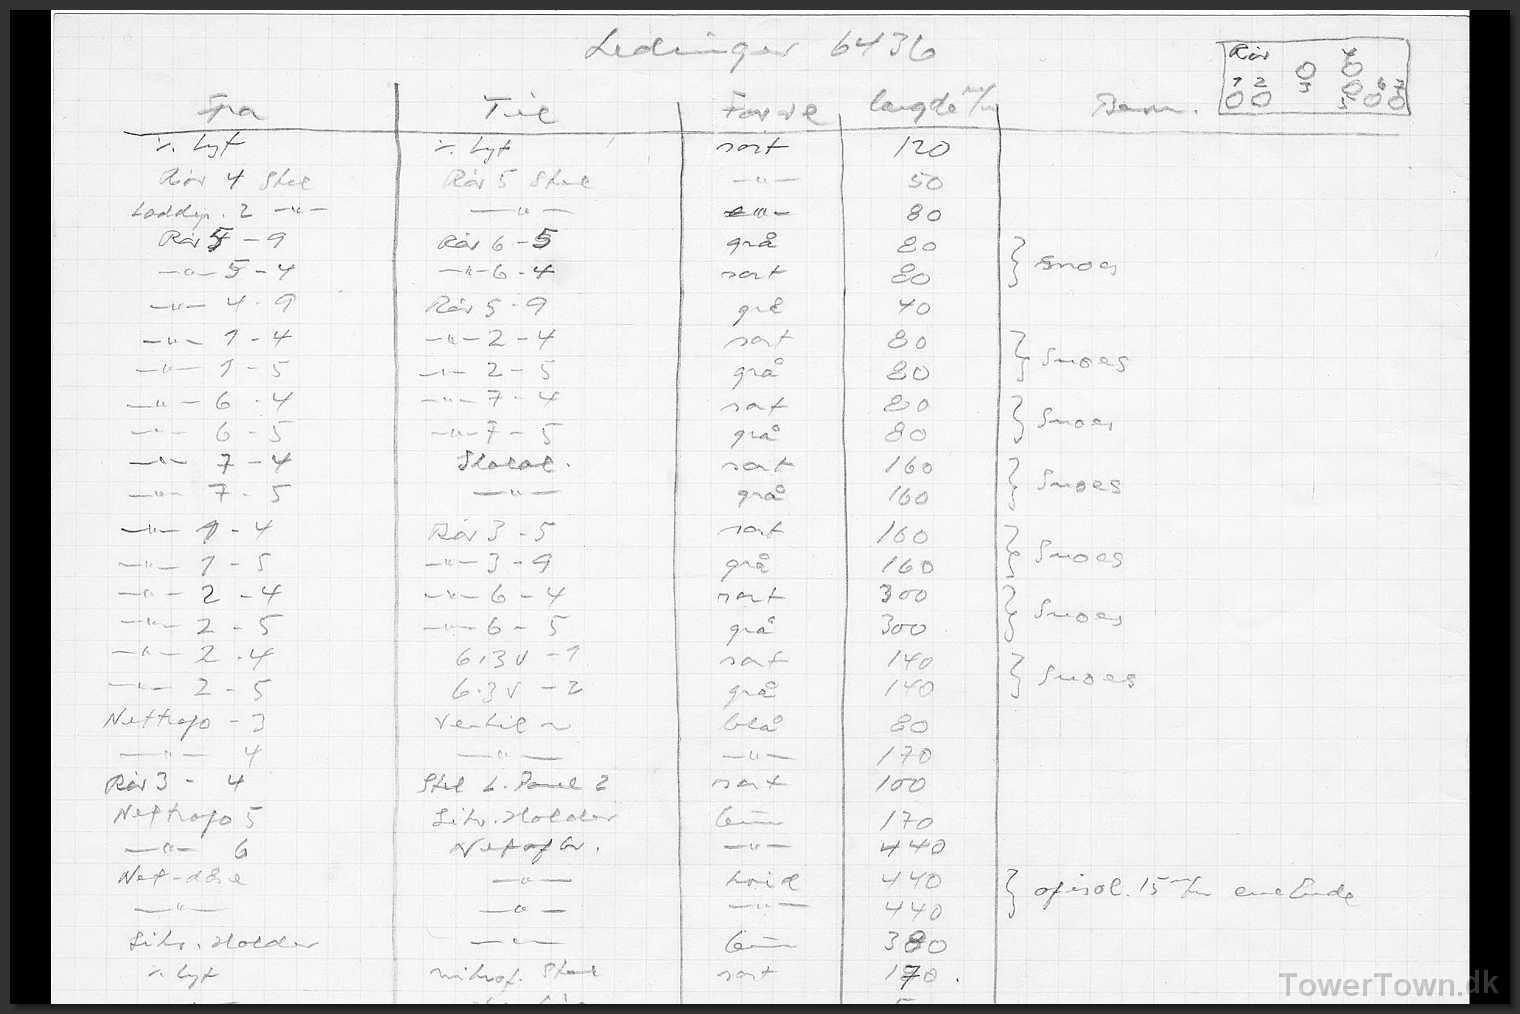 Ledninger 6436
Rör 4
1 2 3 6 7
5
Fra Til Farve længde m/m Bem.
÷ Lyt ÷ Lyt sort 120
Rör 4 Stel Rör 5 Stel —"— 50
2 —"— —"— —"— 80
Rör 5 - 9 Rör 6 - 5 grå 80
—"— 5 - 4 —"— 6 - 4 sort 80 } snoes
—"— 4 - 9 Rör 5 - 9 grå 40
—"— 1 - 4 —"— 2 - 4 sort 80
—"— 1 - 5 —"— 2 - 5 grå 80 } Snoes
—"— 6 - 4 —"— 7 - 4 sort 80
—"— 6 - 5 —"— 7 - 5 grå 80 } Snoes
—"— 7 - 4 Skalal. sort 160
—"— 7 - 5 —"— grå 160 } Snoes
—"— 1 - 4 Rör 3 - 5 sort 160
—"— 1 - 5 —"— 3 - 9 grå 160 } Snoes
—"— 2 - 4 —"— 6 - 4 sort 300
—"— 2 - 5 —"— 6 - 5 grå 300 } Snoes
—"— 2 - 4 6.3V - 1 sort 140
—"— 2 - 5 6.3V - 2 grå 140 } Snoes
Nettrafo - 3 Ventil ~ blå 80
—"— 4 —"— —"— 170
Rör 3 - 4 Stel L. Panel 2 sort 100
Nettrafo 5 Sikr. Holder brun 170
—"— 6 Netafbr. —"— 440
Net-dåse —"— hvid 440
—"— —"— —"— 440 } afisol. 15 m/m ene Ende
Sikr. Holder —"— brun 380
÷ Lyt mikrof. Stel sort 170.
TowerTown.dk